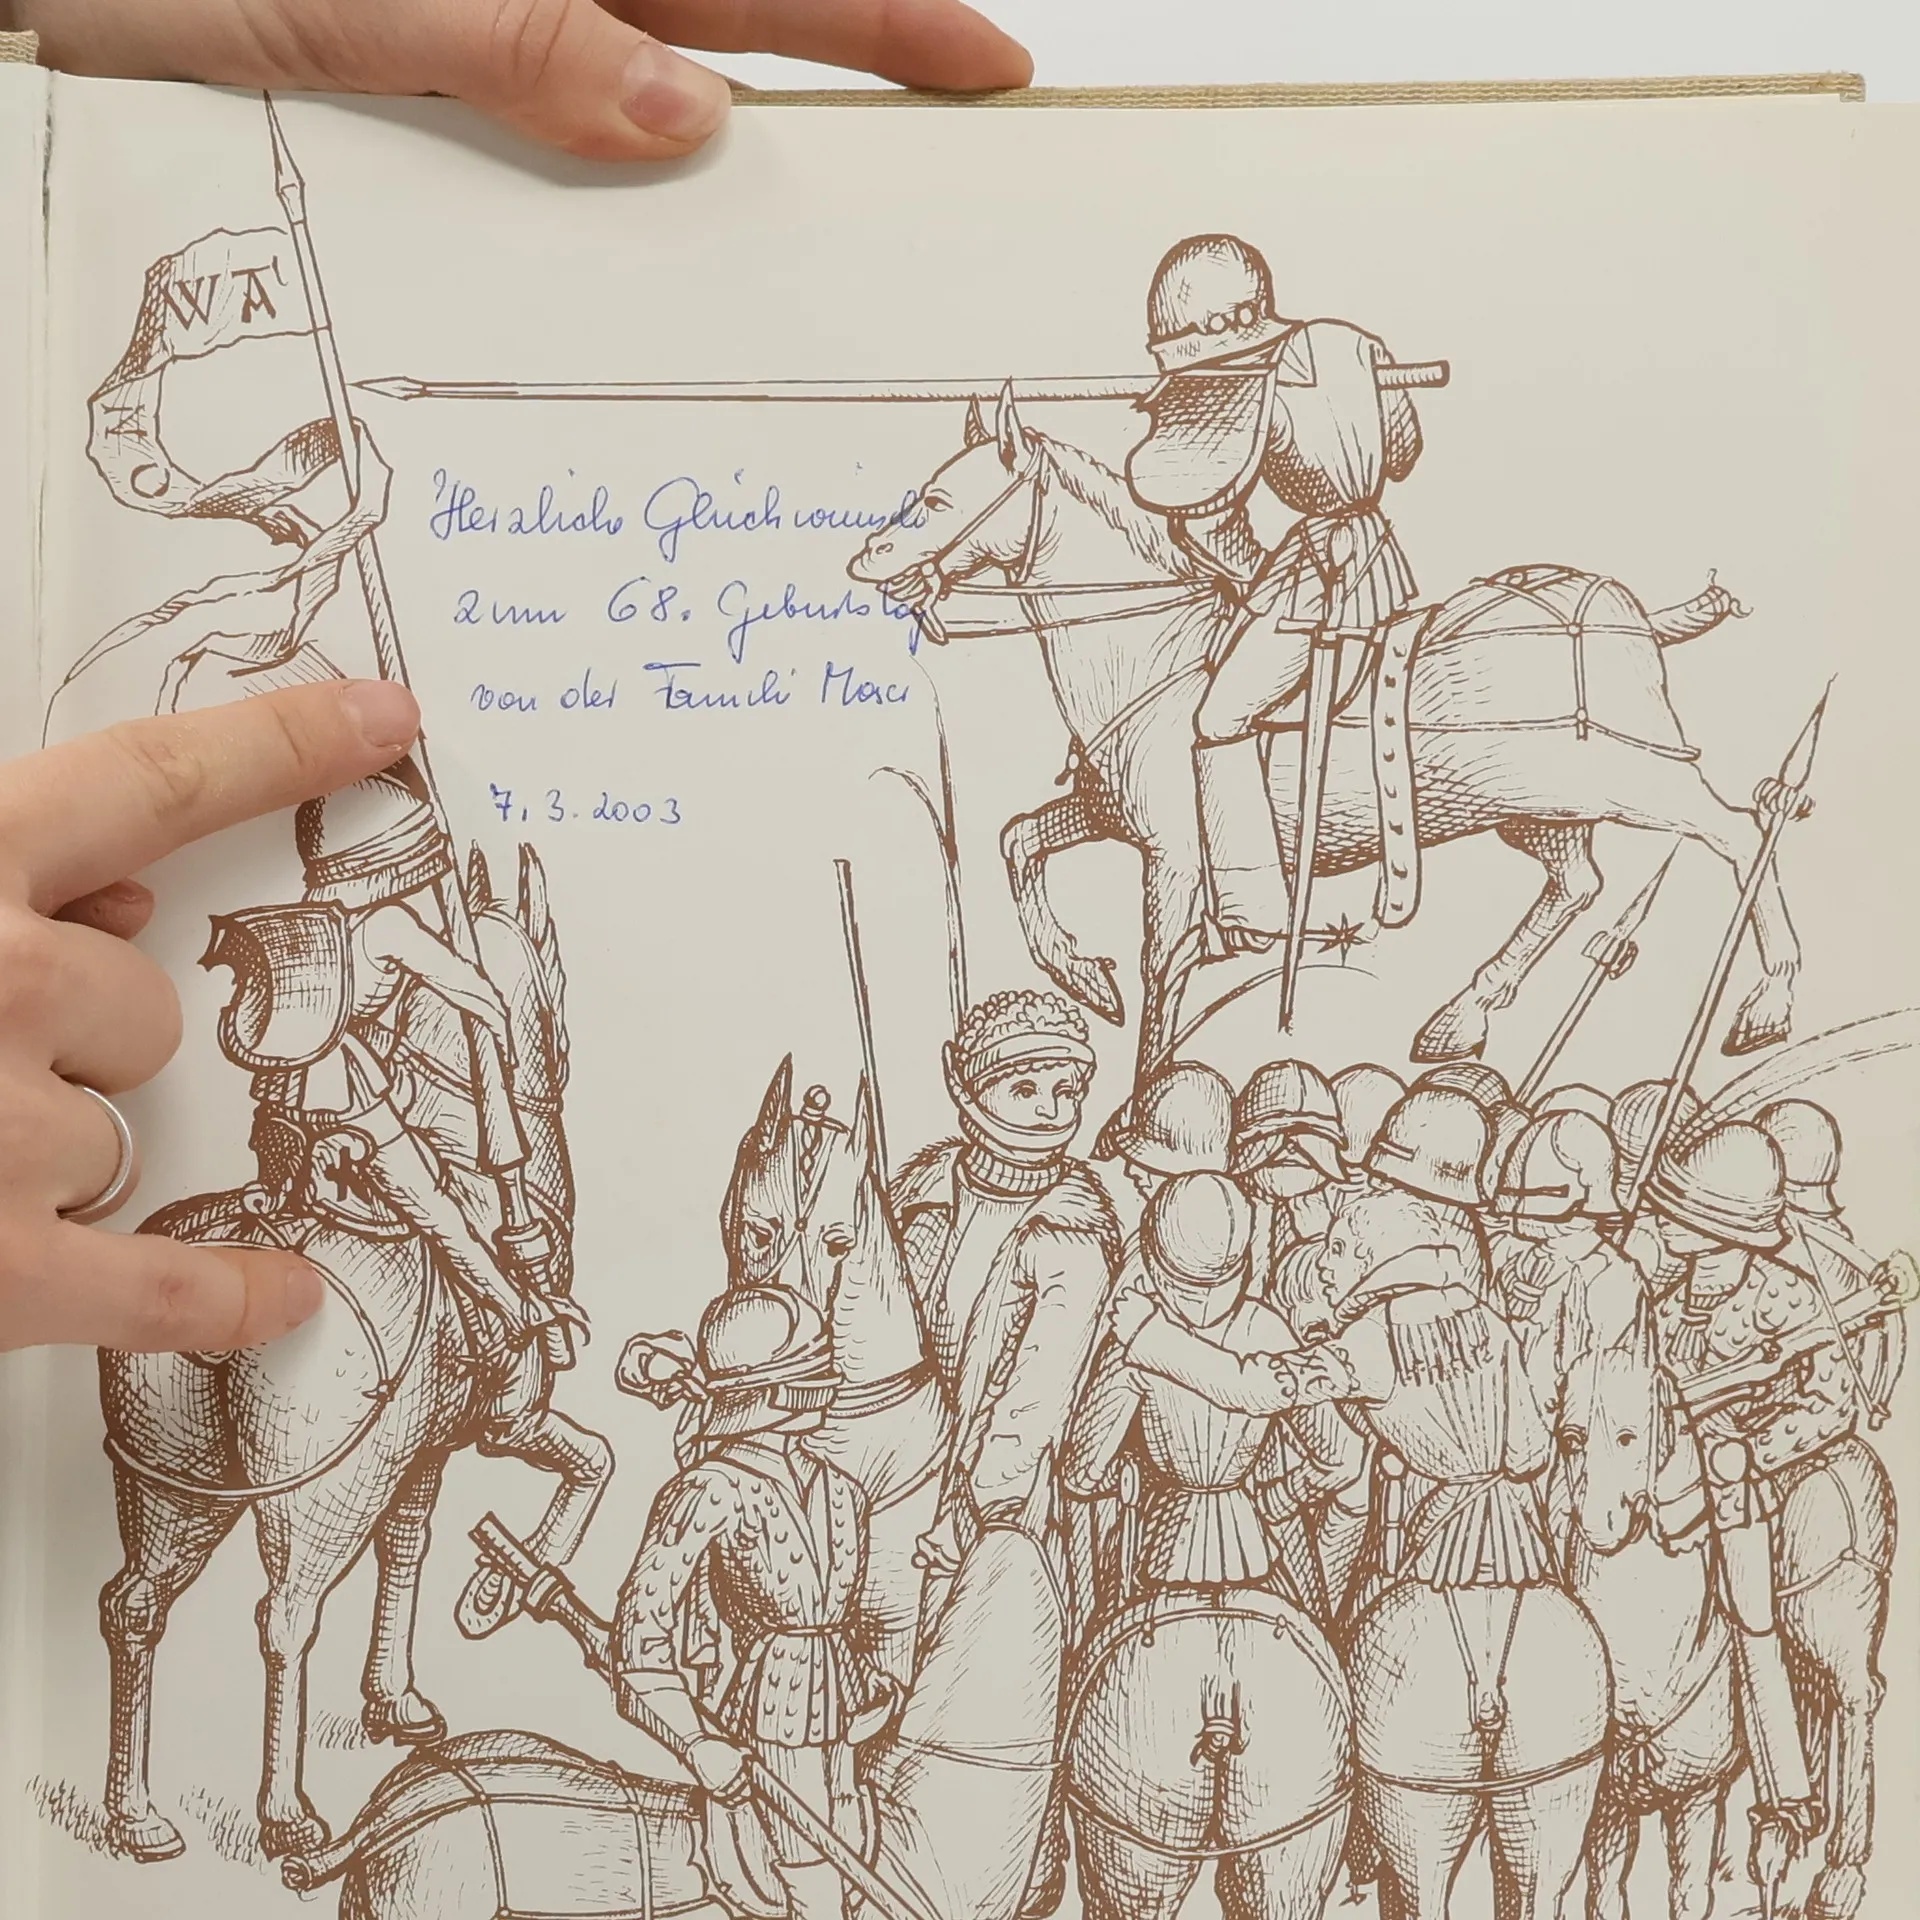 WA
M
O
Herzliche Glückwünsche
zum 68. Geburtstag
von der Familie Moser
7.3.2003